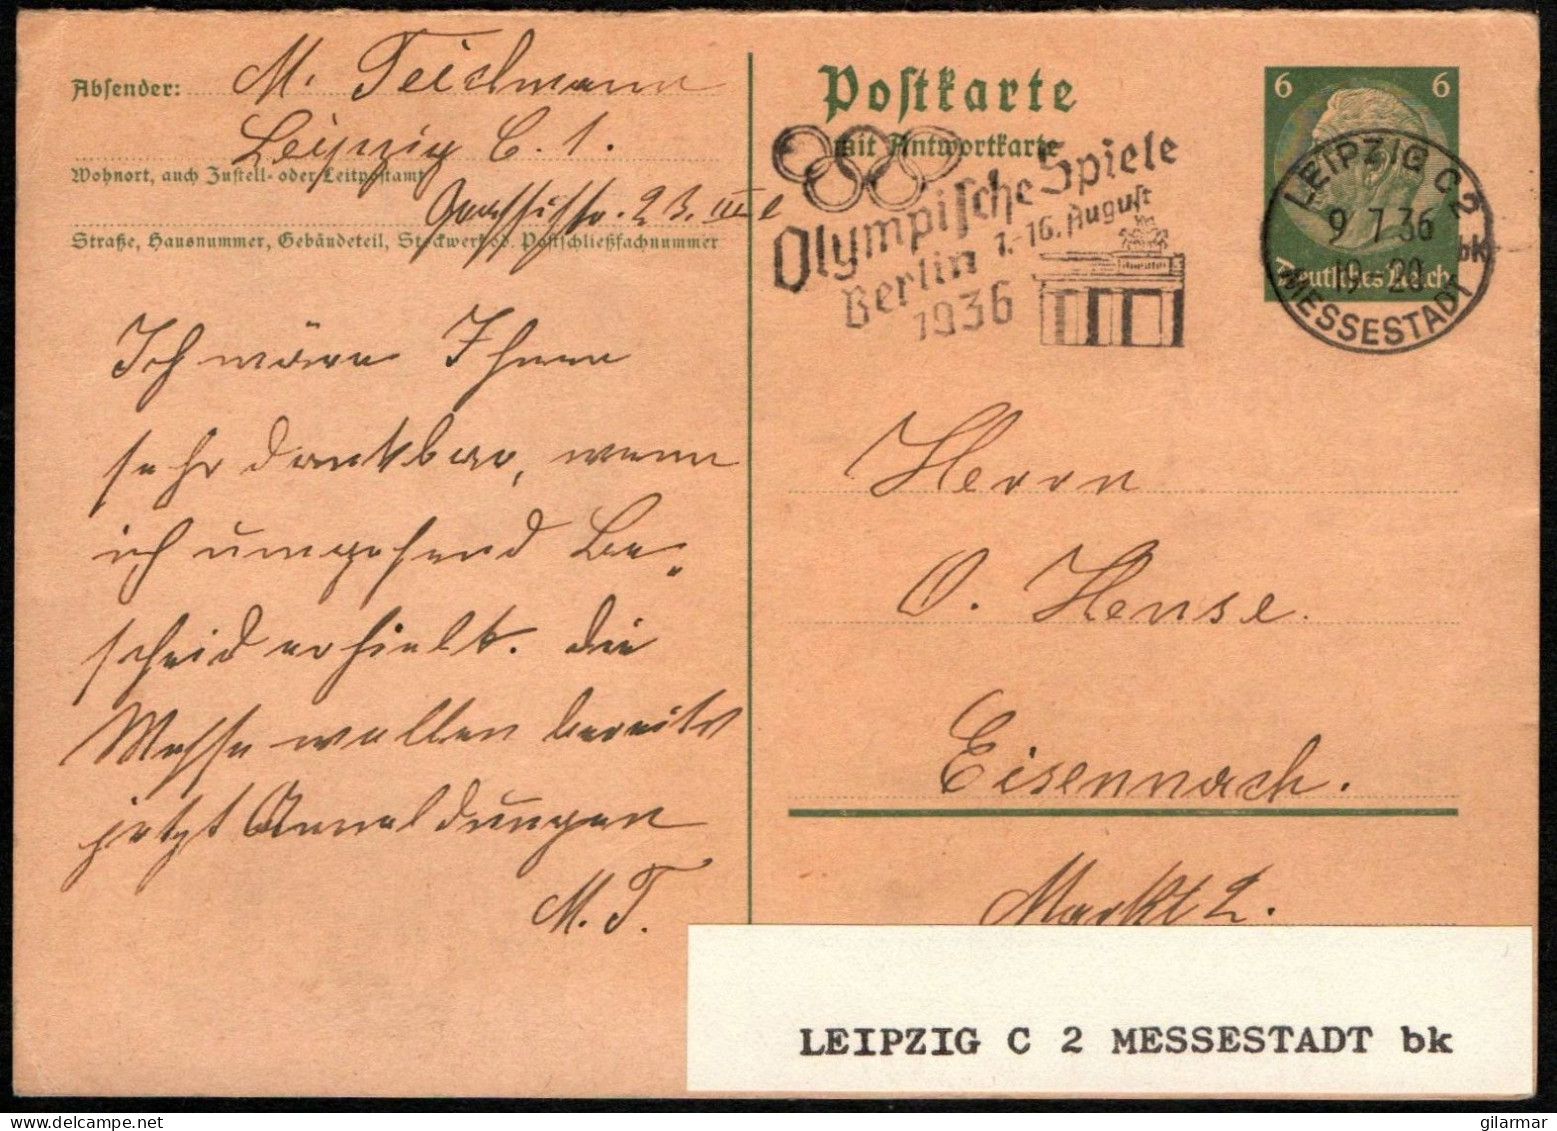 Absender: M. Teichmann
Leipzig C. 1.
Wohnort, auch Zustell- oder Leitpostamt
23. III l
Straße, Hausnummer, Gebäudeteil, Stockwerk od. Postschließfachnummer
Ich wäre Ihnen
sehr dankbar, wenn
ich umgehend Be-
scheid erhielt. Die
Messe wollen bereits
jetzt Anmeldungen
M. T.
Postkarte
mit Antwortkarte
Olympische Spiele
Berlin 1.-16. August
1936
6 6
Deutsches Reich
LEIPZIG C 2
9 7.36
19-20
bk
MESSESTADT
Herrn
O. Hense.
Eisennach.
Markt 2.
LEIPZIG C 2 MESSESTADT bk
gilarmar